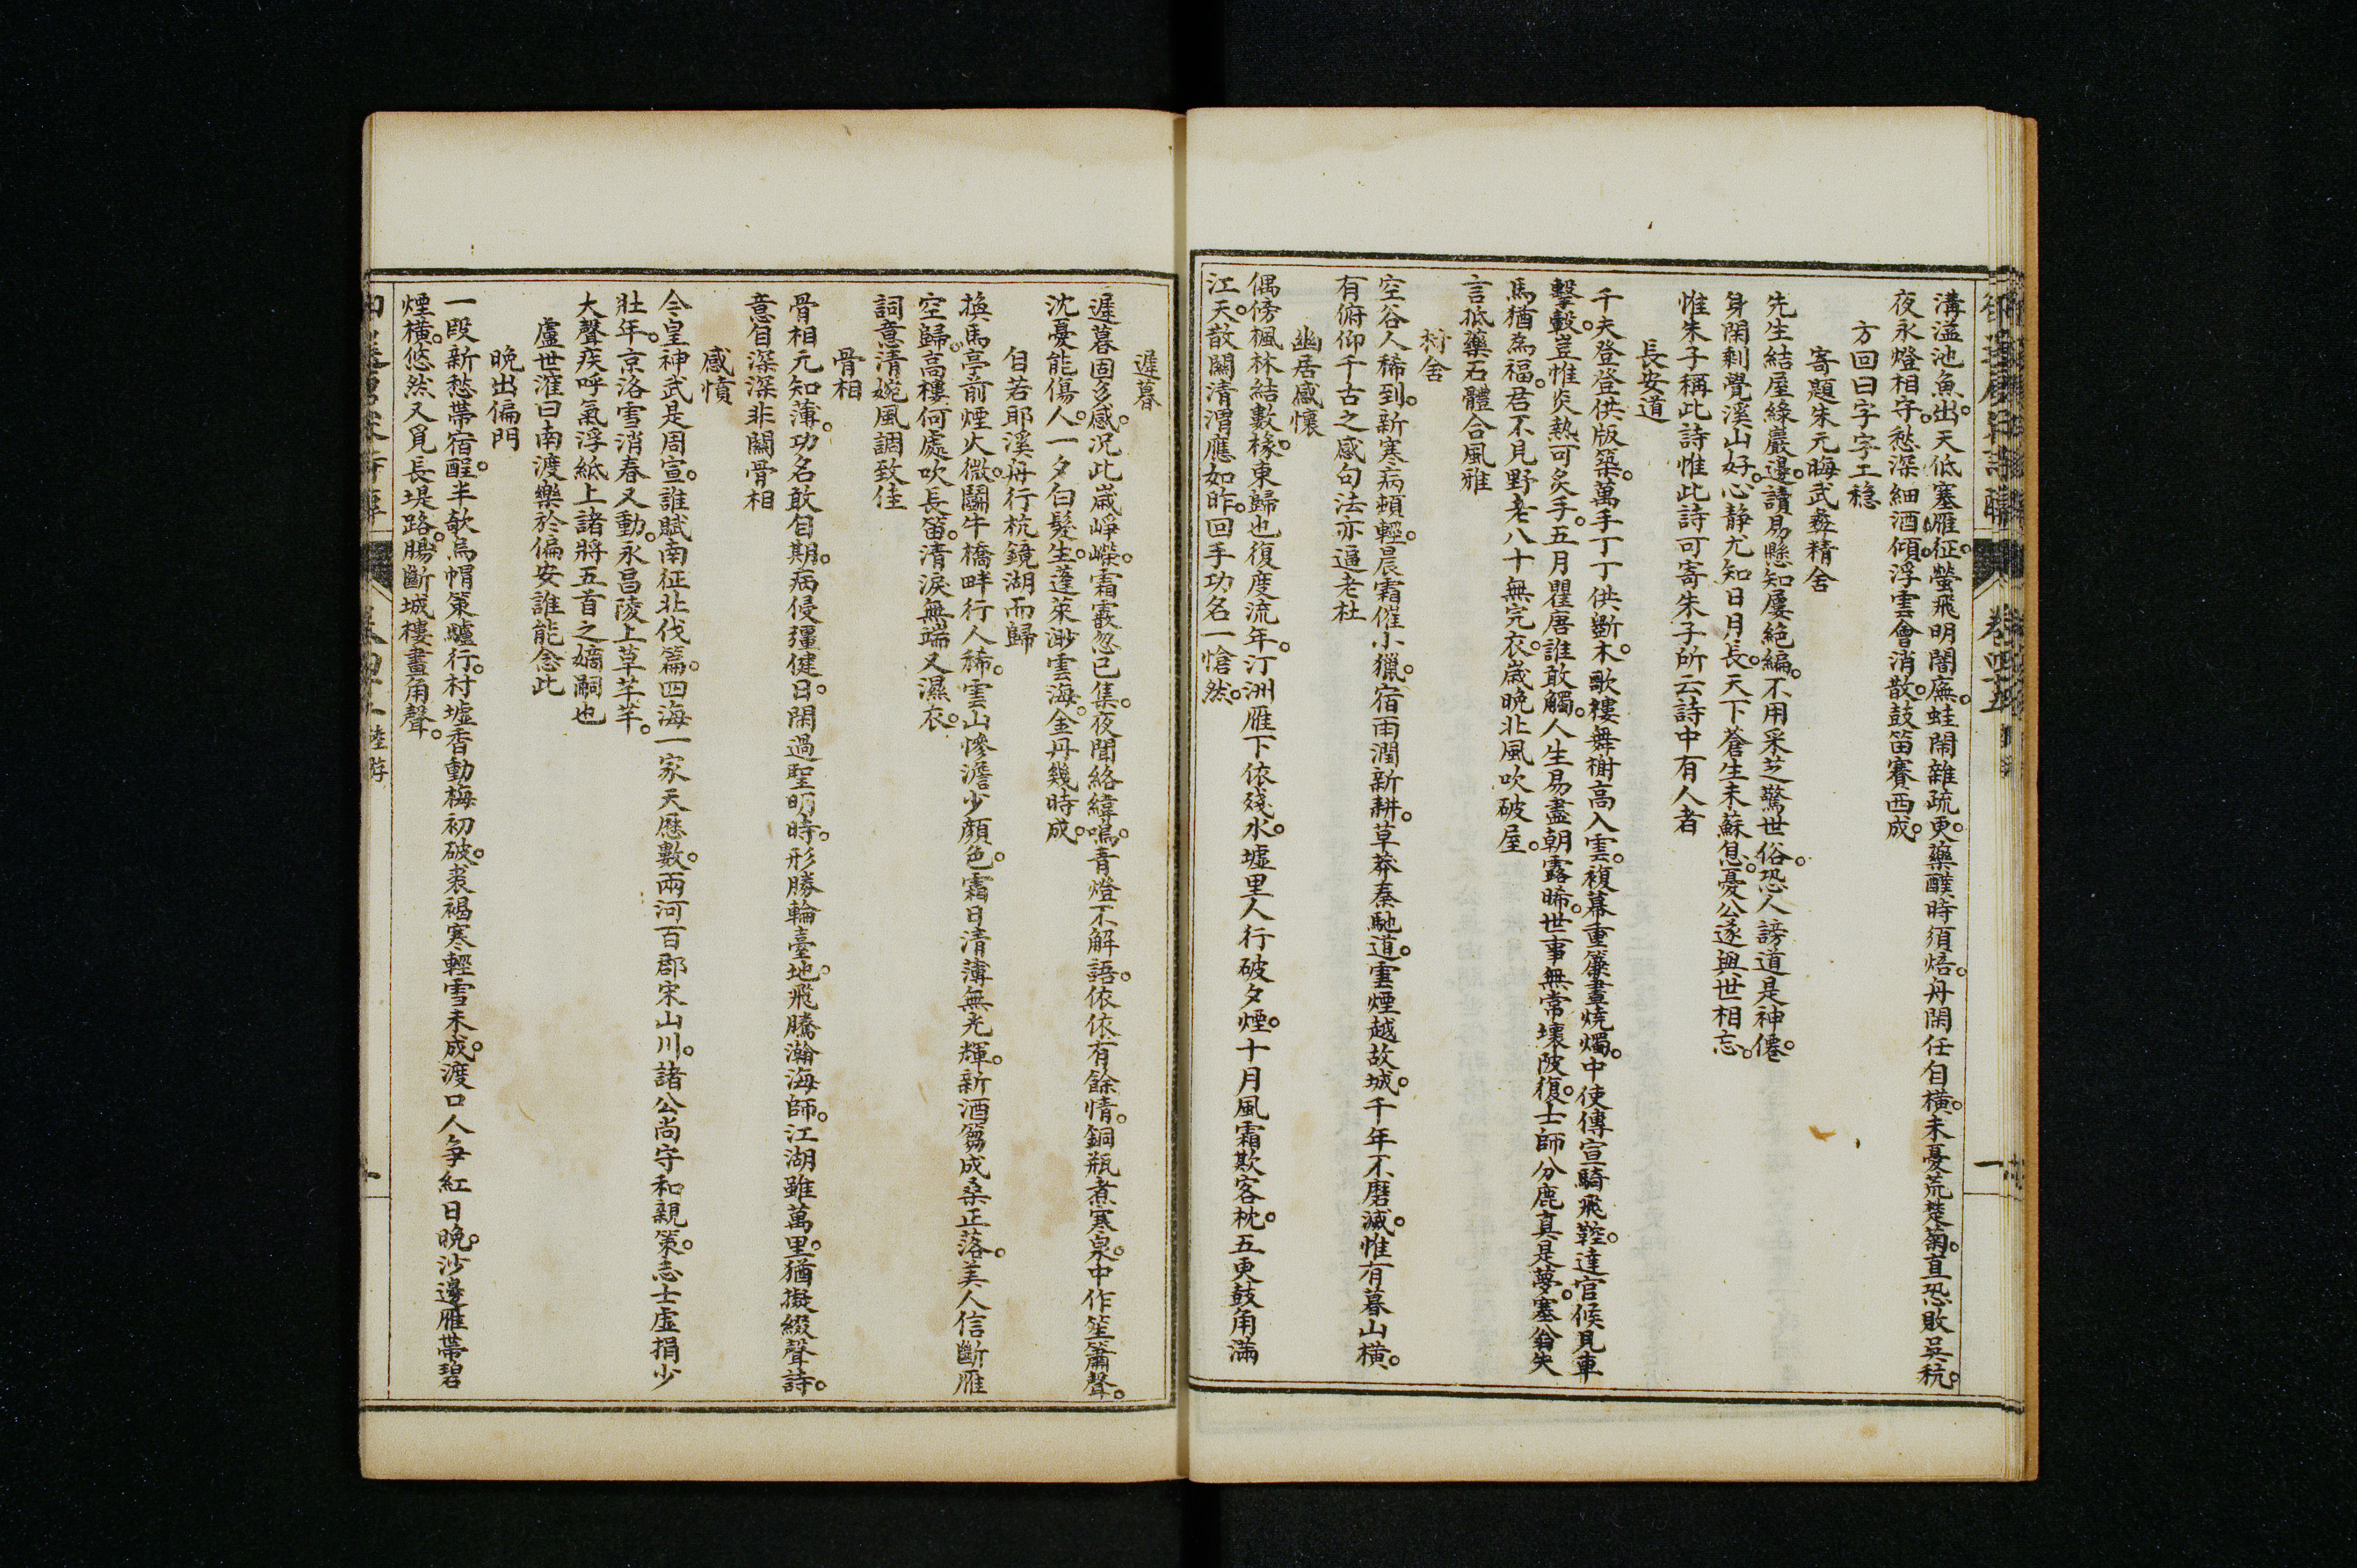 溝溢池魚出。天低塞雁征。螢飛明闇廡。蛙鬧雜疏更。藥醭時須焙。舟閑任自橫。未憂荒楚菊。直恐敗吳秔。
夜永燈相守。愁深細酒傾。浮雲會消散。鼓笛賽西成。
方回曰字字工穩
寄題朱元晦武夷精舍
先生結屋綠巖邊。讀易懸知屢絶編。不用采芝驚世俗。恐人謗道是神僊。
身閑剩覺溪山好。心靜尤知日月長。天下蒼生未蘇息。憂公遂與世相忘。
惟朱子稱此詩惟此詩可寄朱子所云詩中有人者
長安道
千夫登登供版築。萬手丁丁供斲木。歌樓舞榭高入雲。複幕重簾晝燒燭。中使傳宣騎飛鞚。達官候見車
擊轂。豈惟炎熱可炙手。五月瞿唐誰敢觸。人生易盡朝露晞。世事無常壞陂復。士師分鹿真是夢。塞翁失
馬猶爲福。君不見野老八十無完衣。歲晚北風吹破屋。
言抵藥石體合風雅
村舍
空谷人稀到。新寒病頓輕。晨霜催小獵。宿雨潤新耕。草莽秦馳道。雲煙越故城。千年不磨滅。惟有暮山橫。
有俯仰千古之感句法亦逼老杜
幽居感懷
偶傍楓林結數椽。東歸也復度流年。汀洲雁下依殘水。墟里人行破夕煙。十月風霜欺客枕。五更鼓角滿
江天。散關清渭應如昨。回手功名一愴然。
卷四十五
遲暮
遲暮固多感。況此歲崢嶸。霜霰忽已集。夜聞絡緯鳴。青燈不解語。依依有餘情。銅瓶煮寒泉。中作笙簫聲。
沈憂能傷人。一夕白髮生。蓬萊渺雲海。金丹幾時成。
自若耶溪舟行杭鏡湖而歸
換馬亭前煙火微。鬭牛橋畔行人稀。雲山慘澹少顔色。霜日清薄無光輝。新酒篘成桑正落。美人信斷雁
空歸。高樓何處吹長笛。清淚無端又濕衣。
詞意清婉風調致佳
骨相
骨相元知薄。功名敢自期。病侵彊健日。閑過聖明時。形勝輪臺地。飛騰瀚海師。江湖雖萬里。猶擬綴聲詩。
意自深深非關骨相
感憤
今皇神武是周宣。誰賦南征北伐篇。四海一家天歷數。兩河百郡宋山川。諸公尚守和親策。志士虛捐少
壯年。京洛雪消春又動。永昌陵上草芊芊。
大聲疾呼氣浮紙上諸將五首之嫡嗣也
盧世㴶曰南渡樂於偏安誰能念此
晚出偏門
一段新愁帶宿酲。半欹烏帽策驢行。村墟香動梅初破。裘褐寒輕雪未成。渡口人爭紅日晚。沙邊雁帶碧
煙橫。悠然又覓長堤路。腸斷城樓畫角聲。
陸游